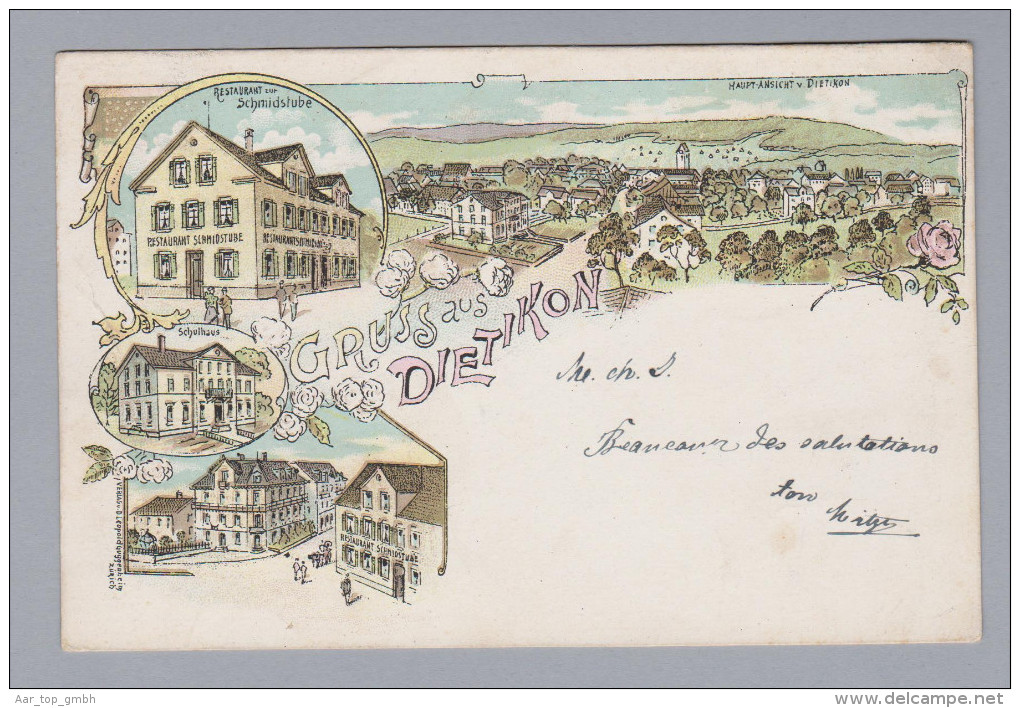 RESTAURANT zur
Schmidstube
HAUPT-ANSICHT v. DIETIKON
RESTAURANT SCHMIDSTUBE
RESTAURANT SCHMIDSTUBE
Schulhaus
GRUSS aus
DIETIKON
RESTAURANT SCHMIDSTUBE
VERLAG v. D. Leopold Guggenheim
ZÜRICH
M. ch. J.
des salutations
ton
Aar_top_gmbh
www.delcampe.net